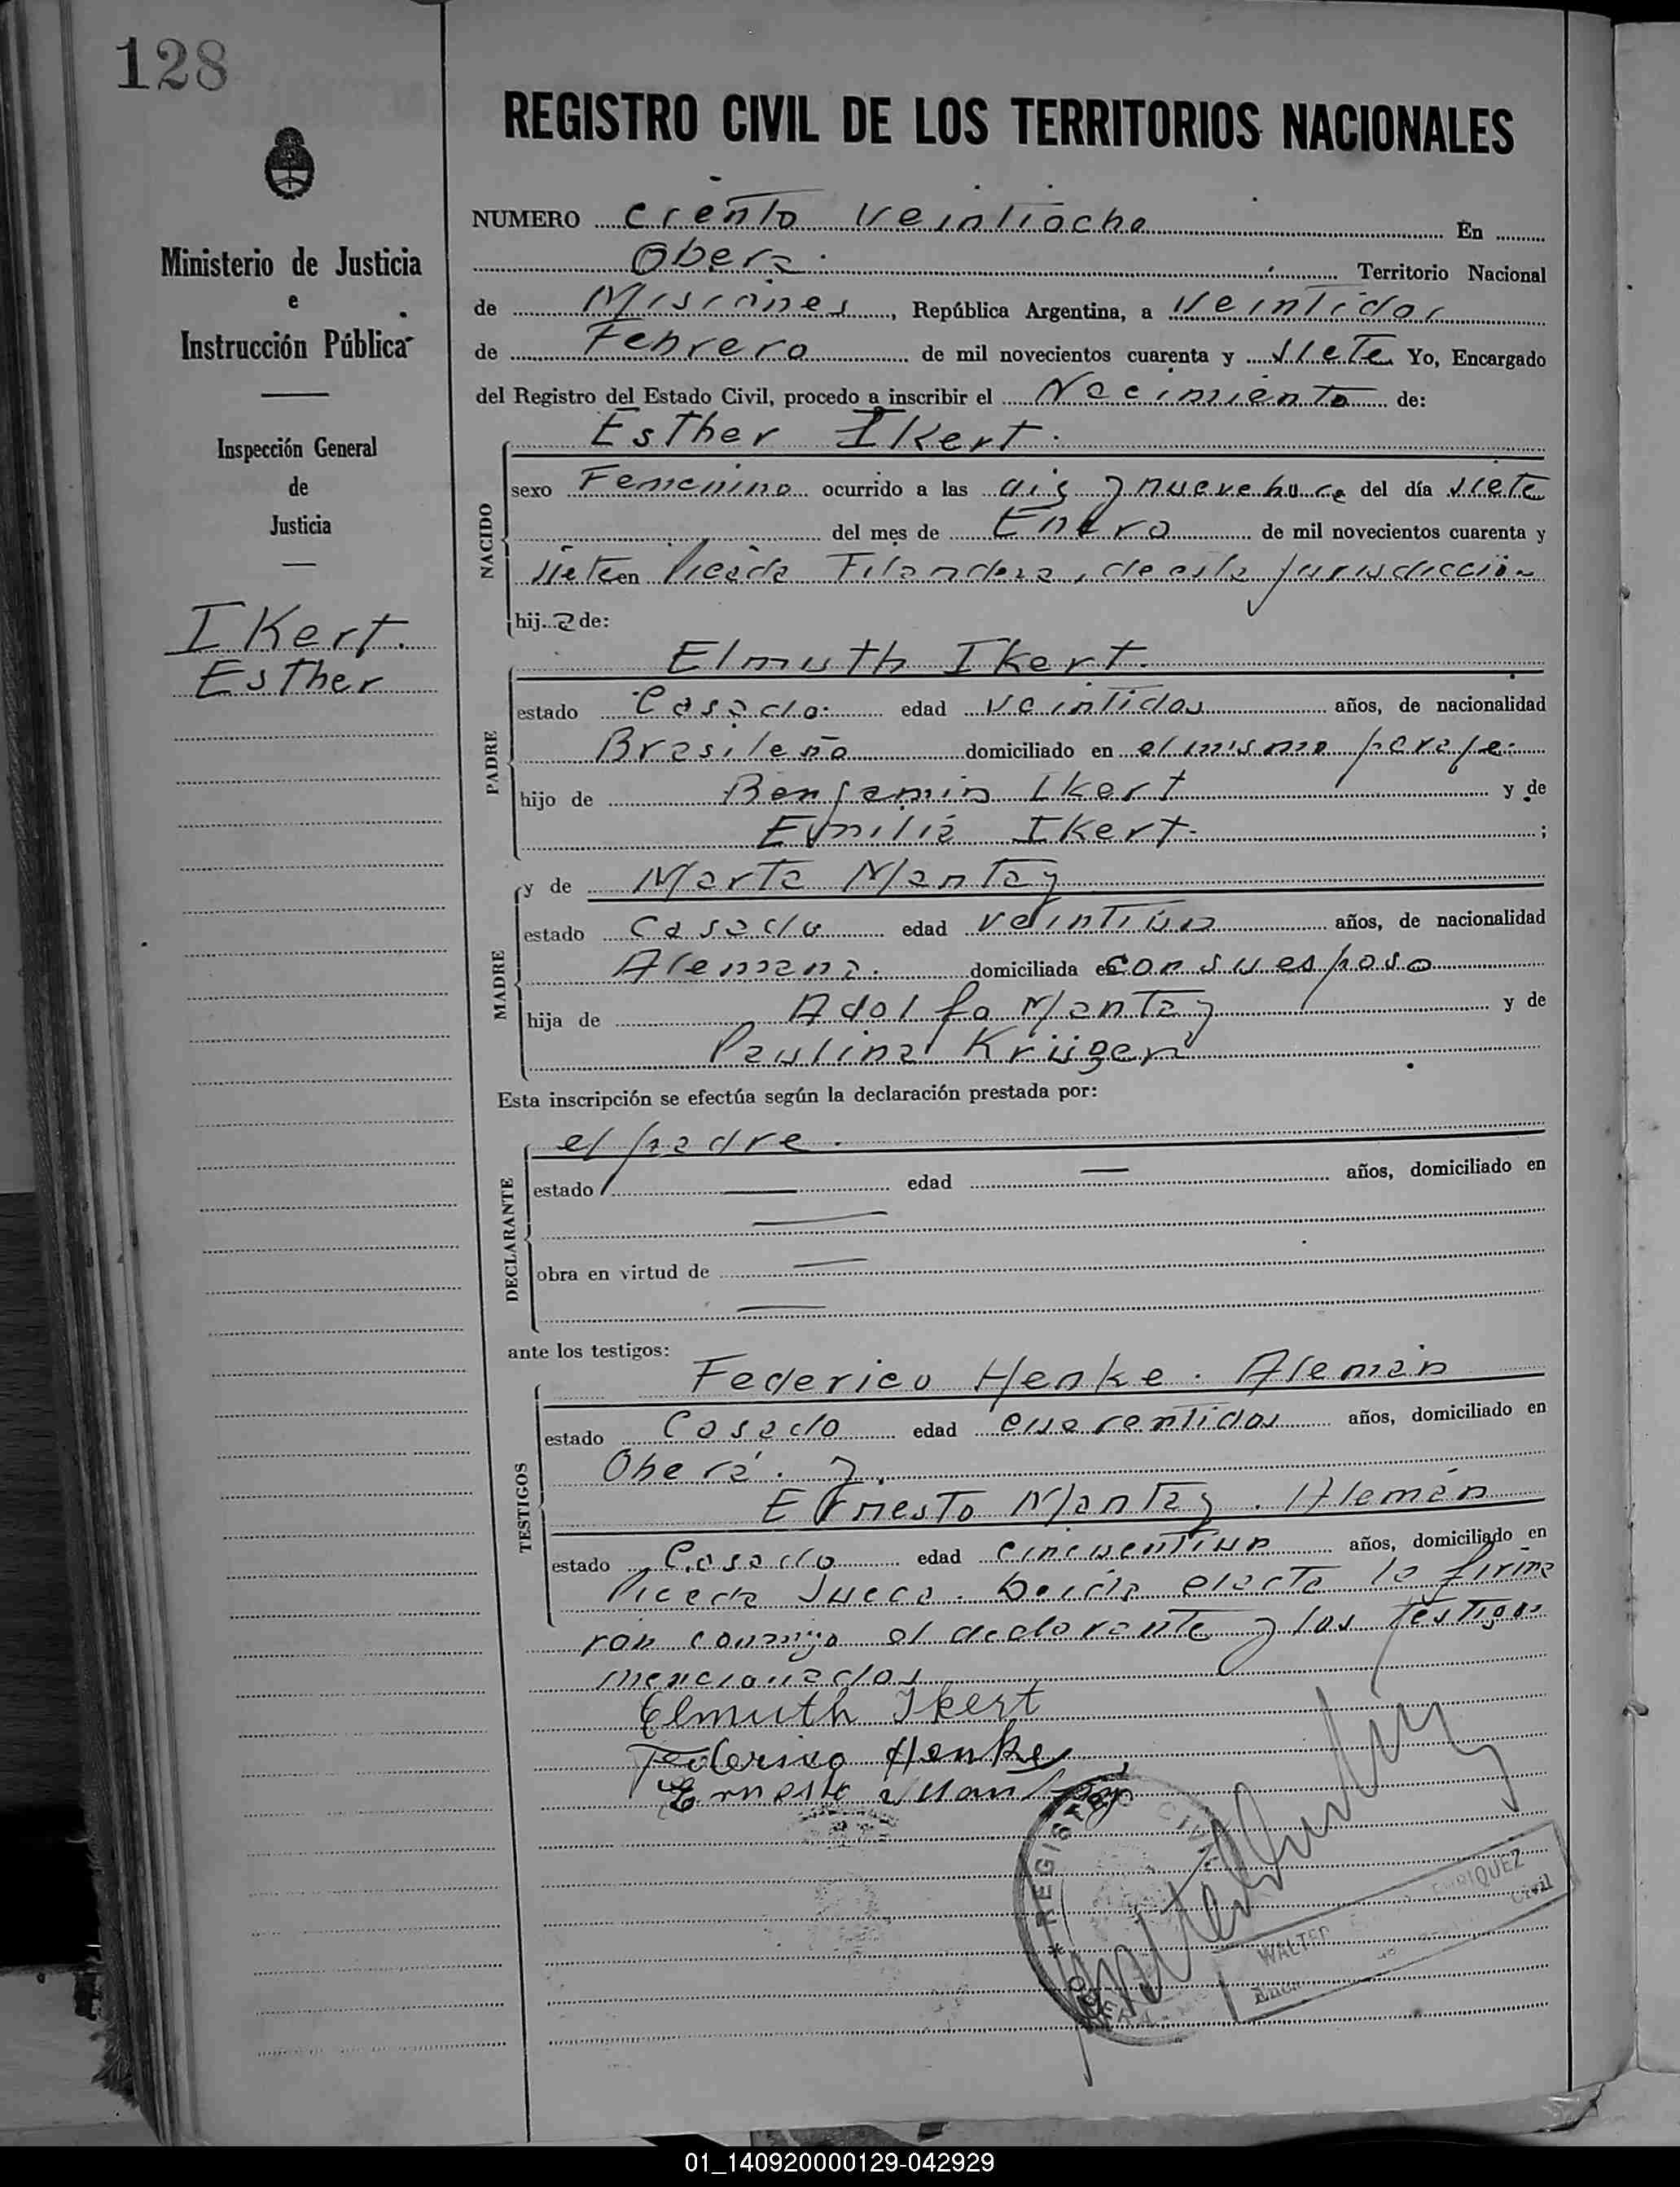 128
REGISTRO CIVIL DE LOS TERRITORIOS NACIONALES
Ministerio de Justicia
e
Instrucción Pública
Inspección General
de
Justicia
IKert.
Esther
NUMERO Ciento Veintiocho En
Oberá. Territorio Nacional
de Misiones, República Argentina, a Veintidos
de Febrero de mil novecientos cuarenta y siete Yo, Encargado
del Registro del Estado Civil, procedo a inscribir el Nacimiento de:
NACIDO
Esther IKert.
sexo Femenino ocurrido a las diez y nueve horas del día siete
del mes de Enero de mil novecientos cuarenta y
siete en Picada Filandesa, de esta jurisdicción
hija de:
PADRE
Elmuth IKert.
estado Casado edad veintidos años, de nacionalidad
Brasileño domiciliado en el mismo paraje.
hijo de Benjamin IKert y de
Emilia IKert. ;
MADRE
y de Marta Mantay
estado Casada edad veintiun años, de nacionalidad
Alemana. domiciliada en con su esposo
hija de Adolfo Mantay y de
Paulina Krüger
Esta inscripción se efectúa según la declaración prestada por:
DECLARANTE
el padre.
estado — edad — años, domiciliado en
—
obra en virtud de —
—
ante los testigos:
TESTIGOS
Federico Henke. Alemán
estado Casado edad cuarentidos años, domiciliado en
Oberá. y
Ernesto Mantay. Alemán
estado Casado edad cincuentiun años, domiciliado en
Picada Sueca. Leída el acta la firma
ron conmigo el declarante y los testigos
mencionados
Elmuth Ikert
Federico Henke
Ernesto Mantay
REGISTRO CIVIL
OBERA
WALTER ENRIQUEZ
Civil
01_140920000129-042929